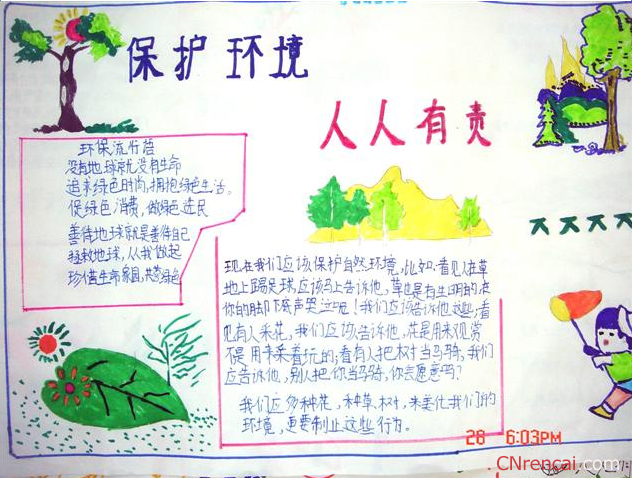 保护环境
人人有责
环保流行语
没有地球就没有生命
追求绿色时尚,拥抱绿色生活。
促绿色消费,做绿色选民
善待地球就是善待自己
拯救地球,从我做起
珍惜生命家园,共营绿色
现在我们应该保护自然环境,比如:看见人在草
地上踢足球,应该马上告诉他,草也是有生命的,在
你的脚下底声哭泣呢!我们应该告诉他这些,看
见有人采花,我们应该告诉他,花是用来观赏
不是用手采着玩的,看有人把树当马骑,我们
应告诉他,别人把你当马骑,你会愿意吗?
我们应多种花,种草、树,来美化我们的
环境,更要制止这些行为。
28 6:03PM
CNrencai.com